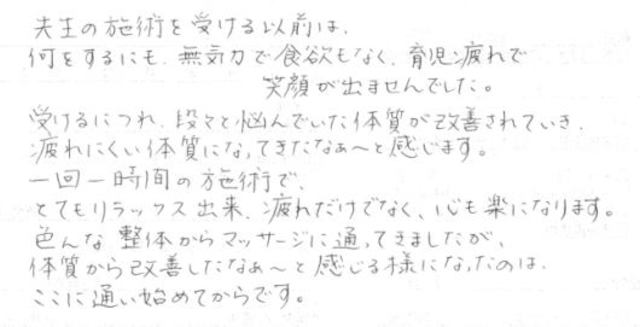 先生の施術を受ける以前は、
何をするにも、無気力で食欲もなく、育児疲れで
笑顔が出ませんでした。
受けるにつれ、段々と悩んでいた体質が改善されていき、
疲れにくい体質になってきたなぁ〜と感じます。
一回一時間の施術で、
とてもリラックス出来、疲れだけでなく、心も楽になります。
色んな整体からマッサージに通ってきましたが、
体質から改善したなぁ〜と感じる様になったのは、
ここに通い始めてからです。